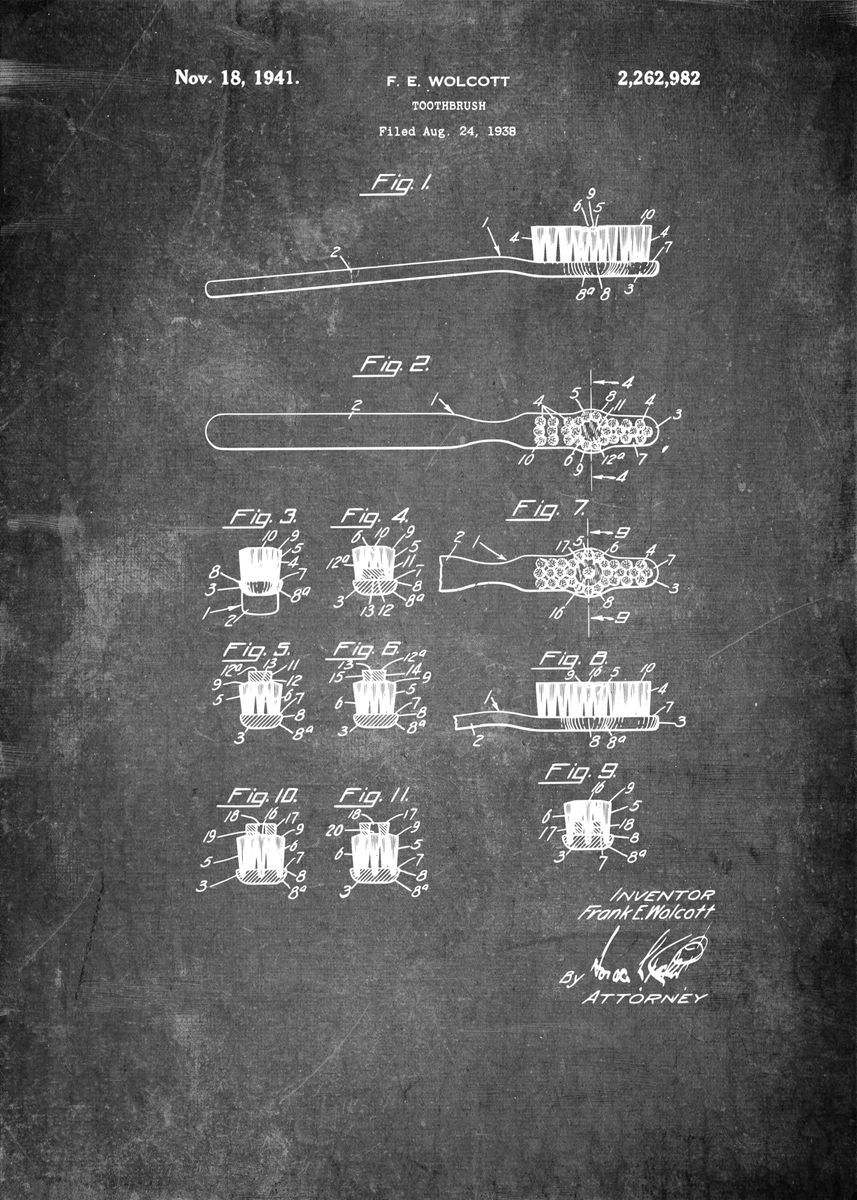 Nov. 18, 1941. F. E. WOLCOTT 2,262,982
TOOTHBRUSH
Filed Aug. 24, 1938
Fig. 1.
9
6 5
1 10
4 4
2 7
8ª 8 3
Fig. 2.
4
1 5 8
2 4 11 4
3
10 6 12ª 7
9
4
Fig. 3.
10 9
5
8 4
3 7
1 8ª
2
Fig. 4.
6 10 9
5
12ª 11
7
8
3 13 12 8ª
Fig. 7.
9
2 1 17 5 6
4 7
3
16 8
9
Fig. 5.
12ª 13 11
9 12
5 6 7
8
3 8ª
Fig. 6.
13 12ª
15 14
9
5
6 7
8
3 8ª
Fig. 8.
9 16 5 10
1 4
3
2 8 8ª
Fig. 9.
16 9
6 5
17 18
8
3 8ª
7
Fig. 10.
18 16 17
19 9
6
5 7
3 8
8ª
Fig. 11.
18 17
20 9
5
6 7
8
3 8ª
INVENTOR
Frank E. Wolcott
By
ATTORNEY